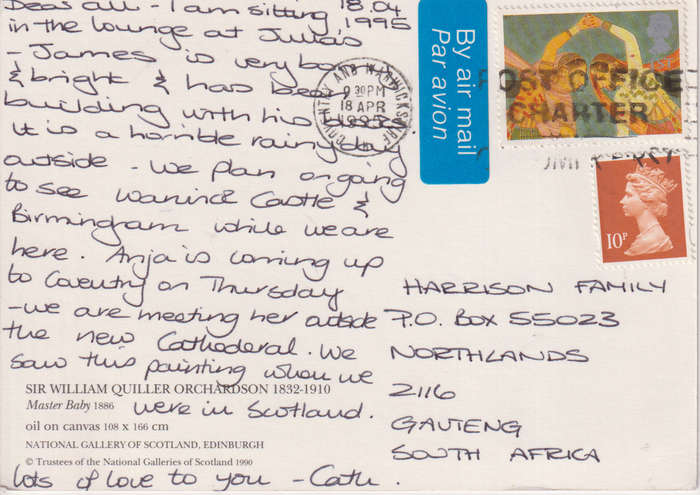 Dear all - I am sitting 18.04
in the lounge at Julia's 1995
- James is very bon
& bright & has been
building with his
It is a horrible rainy day
outside - We plan on going
to see Warwick Castle &
Birmingham while we are
here. Anja is coming up
to Coventry on Thursday
- we are meeting her outside
the new Cathederal. We
saw this painting when we
were in Scotland.
lots of love to you - Cath.
SIR WILLIAM QUILLER ORCHARDSON 1832-1910
Master Baby 1886
oil on canvas 108 x 166 cm
NATIONAL GALLERY OF SCOTLAND, EDINBURGH
© Trustees of the National Galleries of Scotland 1990
COVENTRY AND WARWICKSHIRE
9 30PM
18 APR
1995
By air mail
Par avion
POST OFFICE
CHARTER
10P
HARRISON FAMILY
P.O. BOX 55023
NORTHLANDS
2116
GAUTENG
SOUTH AFRICA